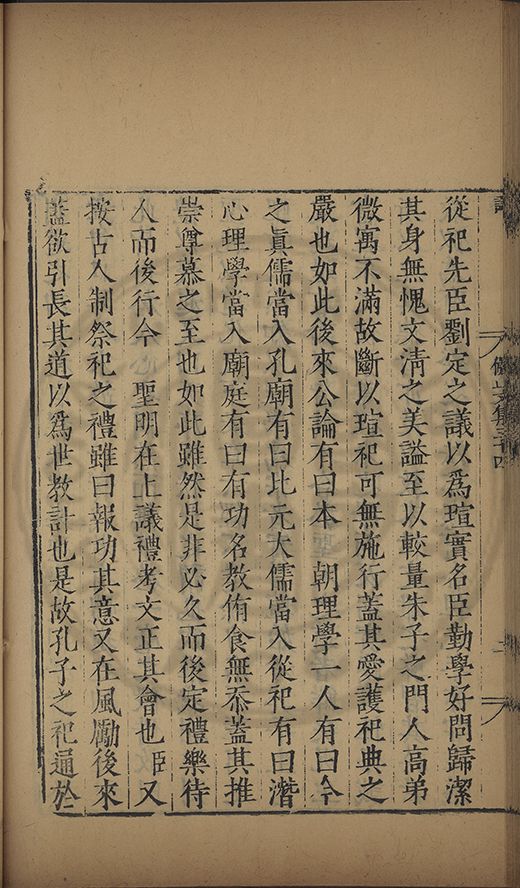 從祀先臣劉定之議以爲瑄實名臣勤學好問歸潔
其身無愧文清之美謚至以較量朱子之門人高弟
微寓不滿故斷以瑄祀可無施行蓋其愛護祀典之
嚴也如此後來公論有曰本 朝理學一人有曰今
之眞儒當入孔廟有曰比元大儒當入從祀有曰濳
心理學當入廟庭有曰有功名教侑食無忝蓋其推
崇尊慕之至也如此雖然是非必久而後定禮樂待
人而後行今 聖明在上議禮考文正其會也臣又
按古人制祭祀之禮雖曰報功其意又在風勵後來
蓋欲引長其道以爲世教計也是故孔子之祀通於